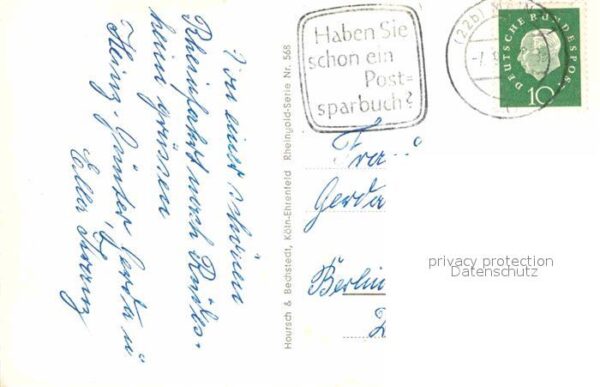 Von einer schönen
Rheinfahrt nach Rüdes-
heim grüssen
Heinz-Günter, Gerda u.
Ella
Hoursch & Bechstedt, Köln-Ehrenfeld Rheingold-Serie Nr. 568
Haben Sie
schon ein
Post=
sparbuch?
(22b)
DEUTSCHE BUNDESPOST
10
Frau
Gerda
Berlin
privacy protection
Datenschutz